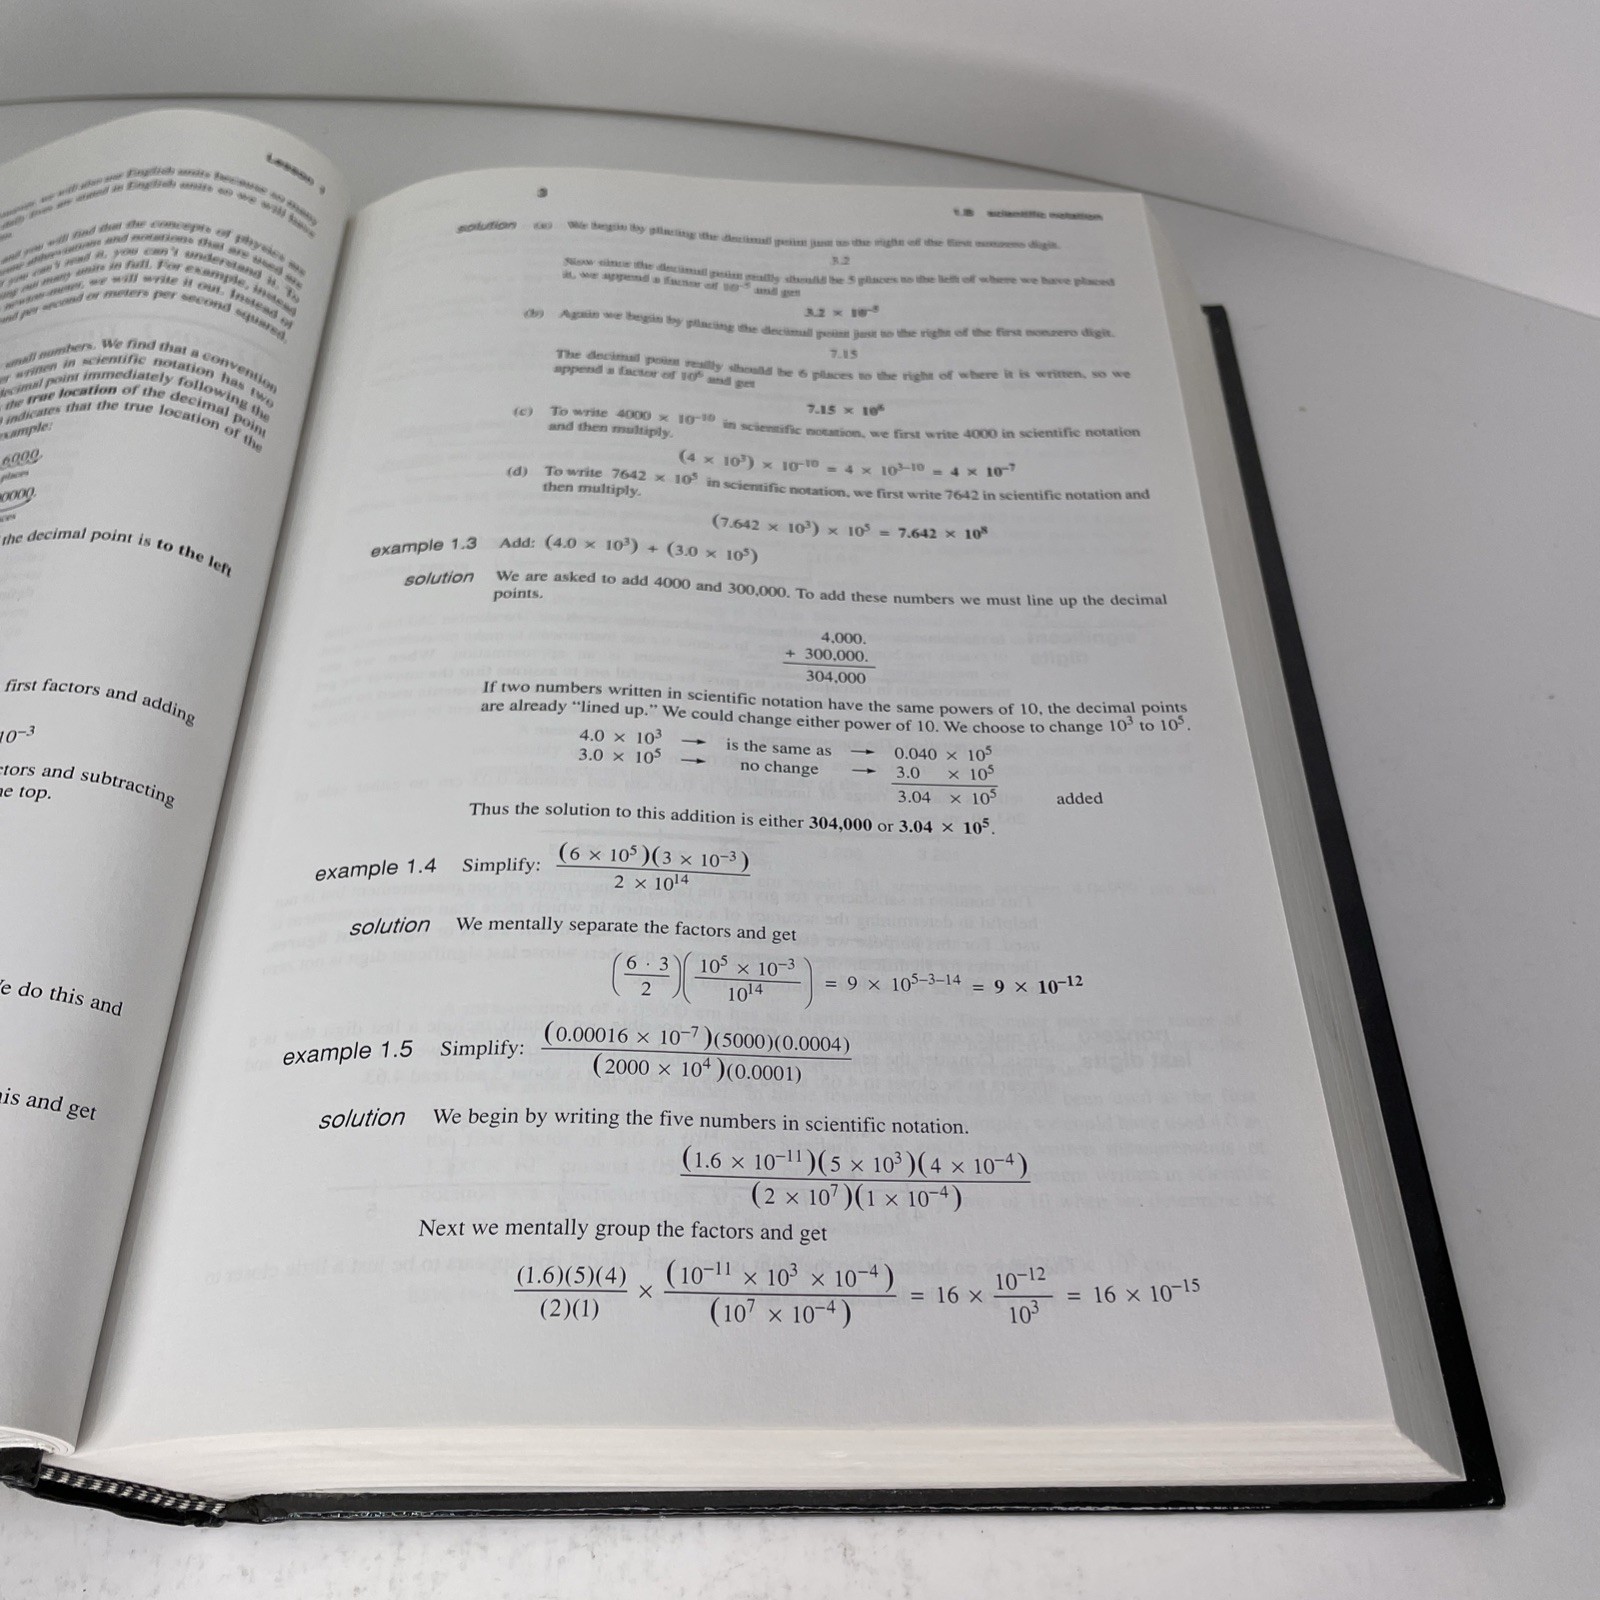 Lesson 1
we will also use English units because so many
are stated in English units so we will have
and you will find that the concepts of physics are
abbreviations and notations that are used are
you can't read it, you can't understand it. To
ing out many units in full. For example, instead
newton-meter, we will write it out. Instead of
per second or meters per second squared.
small numbers. We find that a convention
written in scientific notation has two
decimal point immediately following the
the true location of the decimal point
indicates that the true location of the
example:
6000.
places
0000.
the decimal point is to the left
first factors and adding
10⁻³
tors and subtracting
e top.
e do this and
is and get
3
1.B scientific notation
solution (a) We begin by placing the decimal point just to the right of the first nonzero digit.
3.2
Now since the decimal point really should be 5 places to the left of where we have placed
it, we append a factor of 10⁻⁵ and get
3.2 × 10⁻⁵
(b) Again we begin by placing the decimal point just to the right of the first nonzero digit.
7.15
The decimal point really should be 6 places to the right of where it is written, so we
append a factor of 10⁶ and get
7.15 × 10⁶
(c) To write 4000 × 10⁻¹⁰ in scientific notation, we first write 4000 in scientific notation
and then multiply.
(4 × 10³) × 10⁻¹⁰ = 4 × 10³⁻¹⁰ = 4 × 10⁻⁷
(d) To write 7642 × 10⁵ in scientific notation, we first write 7642 in scientific notation and
then multiply.
(7.642 × 10³) × 10⁵ = 7.642 × 10⁸
example 1.3 Add: (4.0 × 10³) + (3.0 × 10⁵)
solution We are asked to add 4000 and 300,000. To add these numbers we must line up the decimal
points.
4,000.
+ 300,000.
304,000
If two numbers written in scientific notation have the same powers of 10, the decimal points
are already “lined up.” We could change either power of 10. We choose to change 10³ to 10⁵.
4.0 × 10³ → is the same as → 0.040 × 10⁵
3.0 × 10⁵ → no change → 3.0 × 10⁵
3.04 × 10⁵ added
Thus the solution to this addition is either 304,000 or 3.04 × 10⁵.
example 1.4 Simplify: (6 × 10⁵)(3 × 10⁻³)
2 × 10¹⁴
solution We mentally separate the factors and get
(6 · 3 / 2)(10⁵ × 10⁻³ / 10¹⁴) = 9 × 10⁵⁻³⁻¹⁴ = 9 × 10⁻¹²
example 1.5 Simplify: (0.00016 × 10⁻⁷)(5000)(0.0004)
(2000 × 10⁴)(0.0001)
solution We begin by writing the five numbers in scientific notation.
(1.6 × 10⁻¹¹)(5 × 10³)(4 × 10⁻⁴)
(2 × 10⁷)(1 × 10⁻⁴)
Next we mentally group the factors and get
(1.6)(5)(4) / (2)(1) × (10⁻¹¹ × 10³ × 10⁻⁴) / (10⁷ × 10⁻⁴) = 16 × 10⁻¹² / 10³ = 16 × 10⁻¹⁵